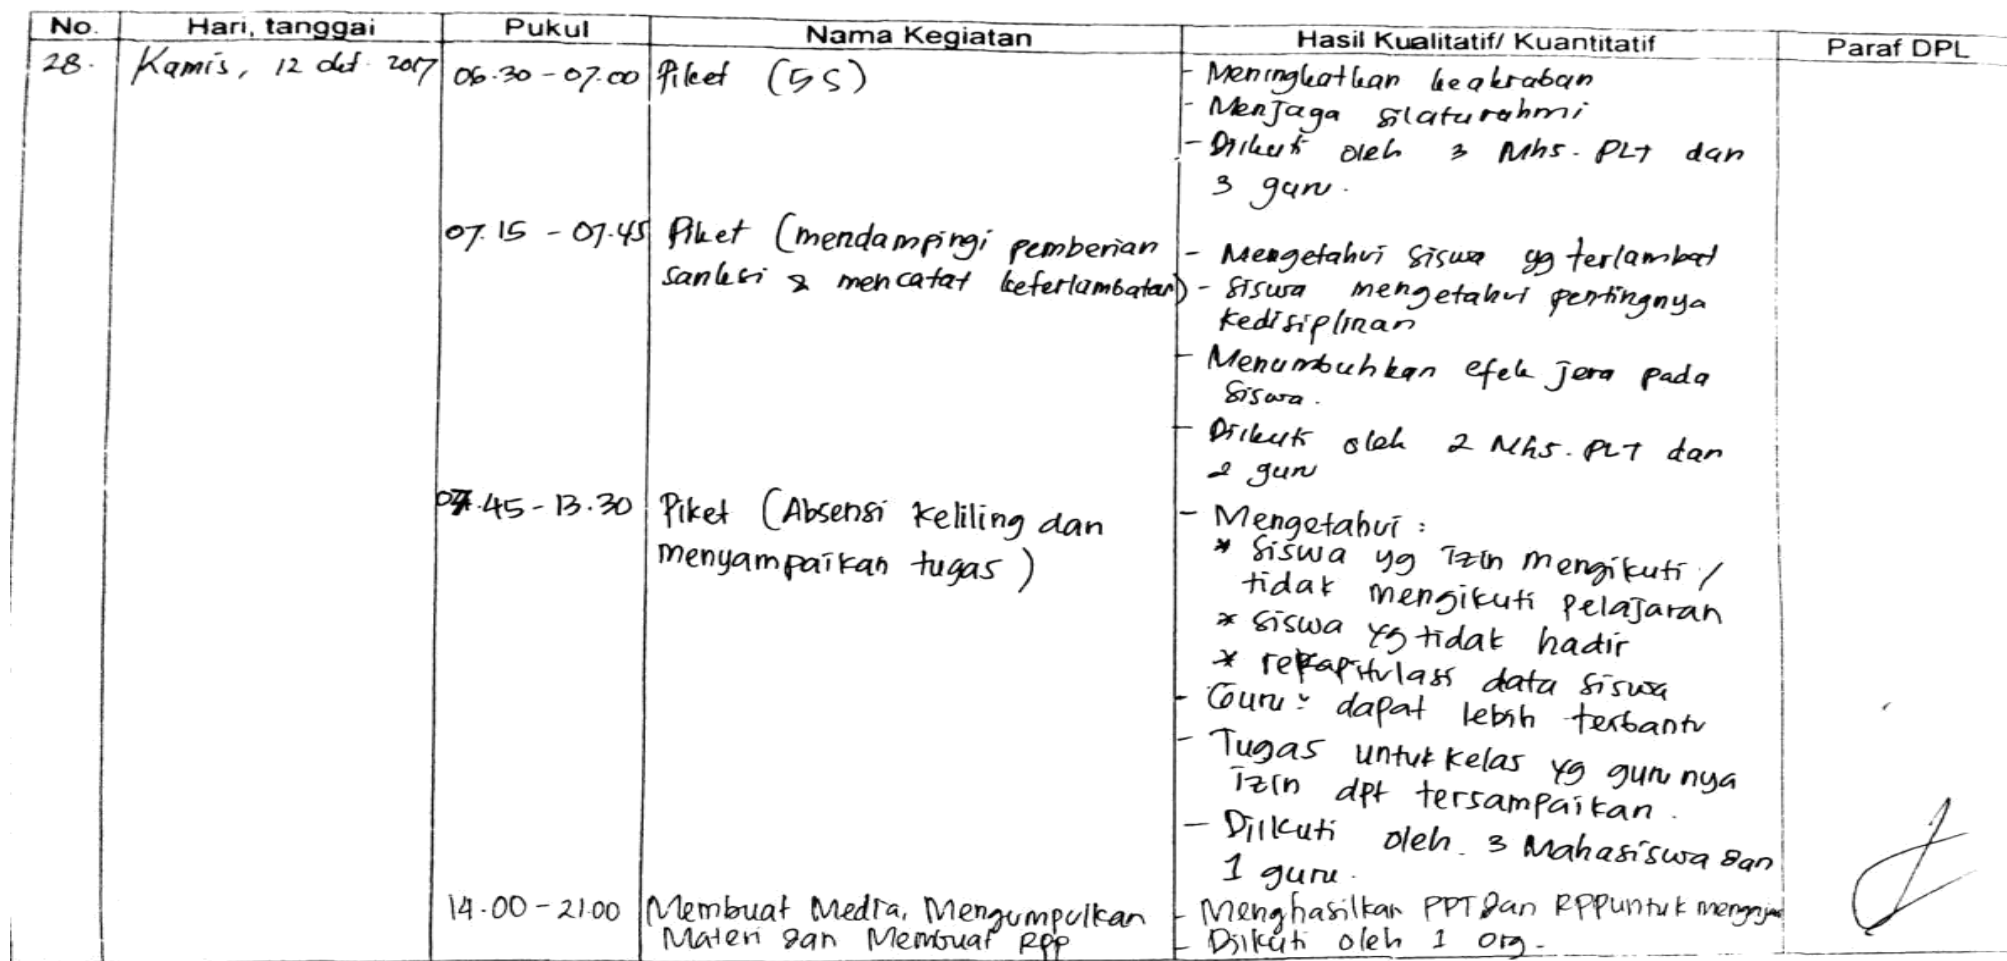 No. Hari, tanggal Pukul Nama Kegiatan Hasil Kualitatif/ Kuantitatif Paraf DPL
28. Kamis, 12 okt. 2017 06.30 - 07.00 Piket (5S) - Meningkatkan keakraban
- Menjaga silaturahmi
- Diikuti oleh 3 Mhs. PLT dan
3 guru.
07.15 - 07.45 Piket (mendampingi pemberian - Mengetahui siswa yg terlambat
sanksi & mencatat keterlambatan) - siswa mengetahui pentingnya
kedisiplinan
- Menumbuhkan efek jera pada
siswa.
- Diikuti oleh 2 Mhs. PLT dan
2 guru
07.45 - 13.30 Piket (Absensi keliling dan - Mengetahui :
menyampaikan tugas) * siswa yg izin mengikuti /
tidak mengikuti pelajaran
* siswa yg tidak hadir
* rekapitulasi data siswa
- Guru : dapat lebih terbantu
- Tugas untuk kelas yg gurunya
izin dpt tersampaikan.
- Diikuti oleh 3 Mahasiswa dan
1 guru.
14.00 - 21.00 Membuat Media, Mengumpulkan - Menghasilkan PPT dan RPP untuk mengajar
Materi dan Membuat RPP - Diikuti oleh 1 org.